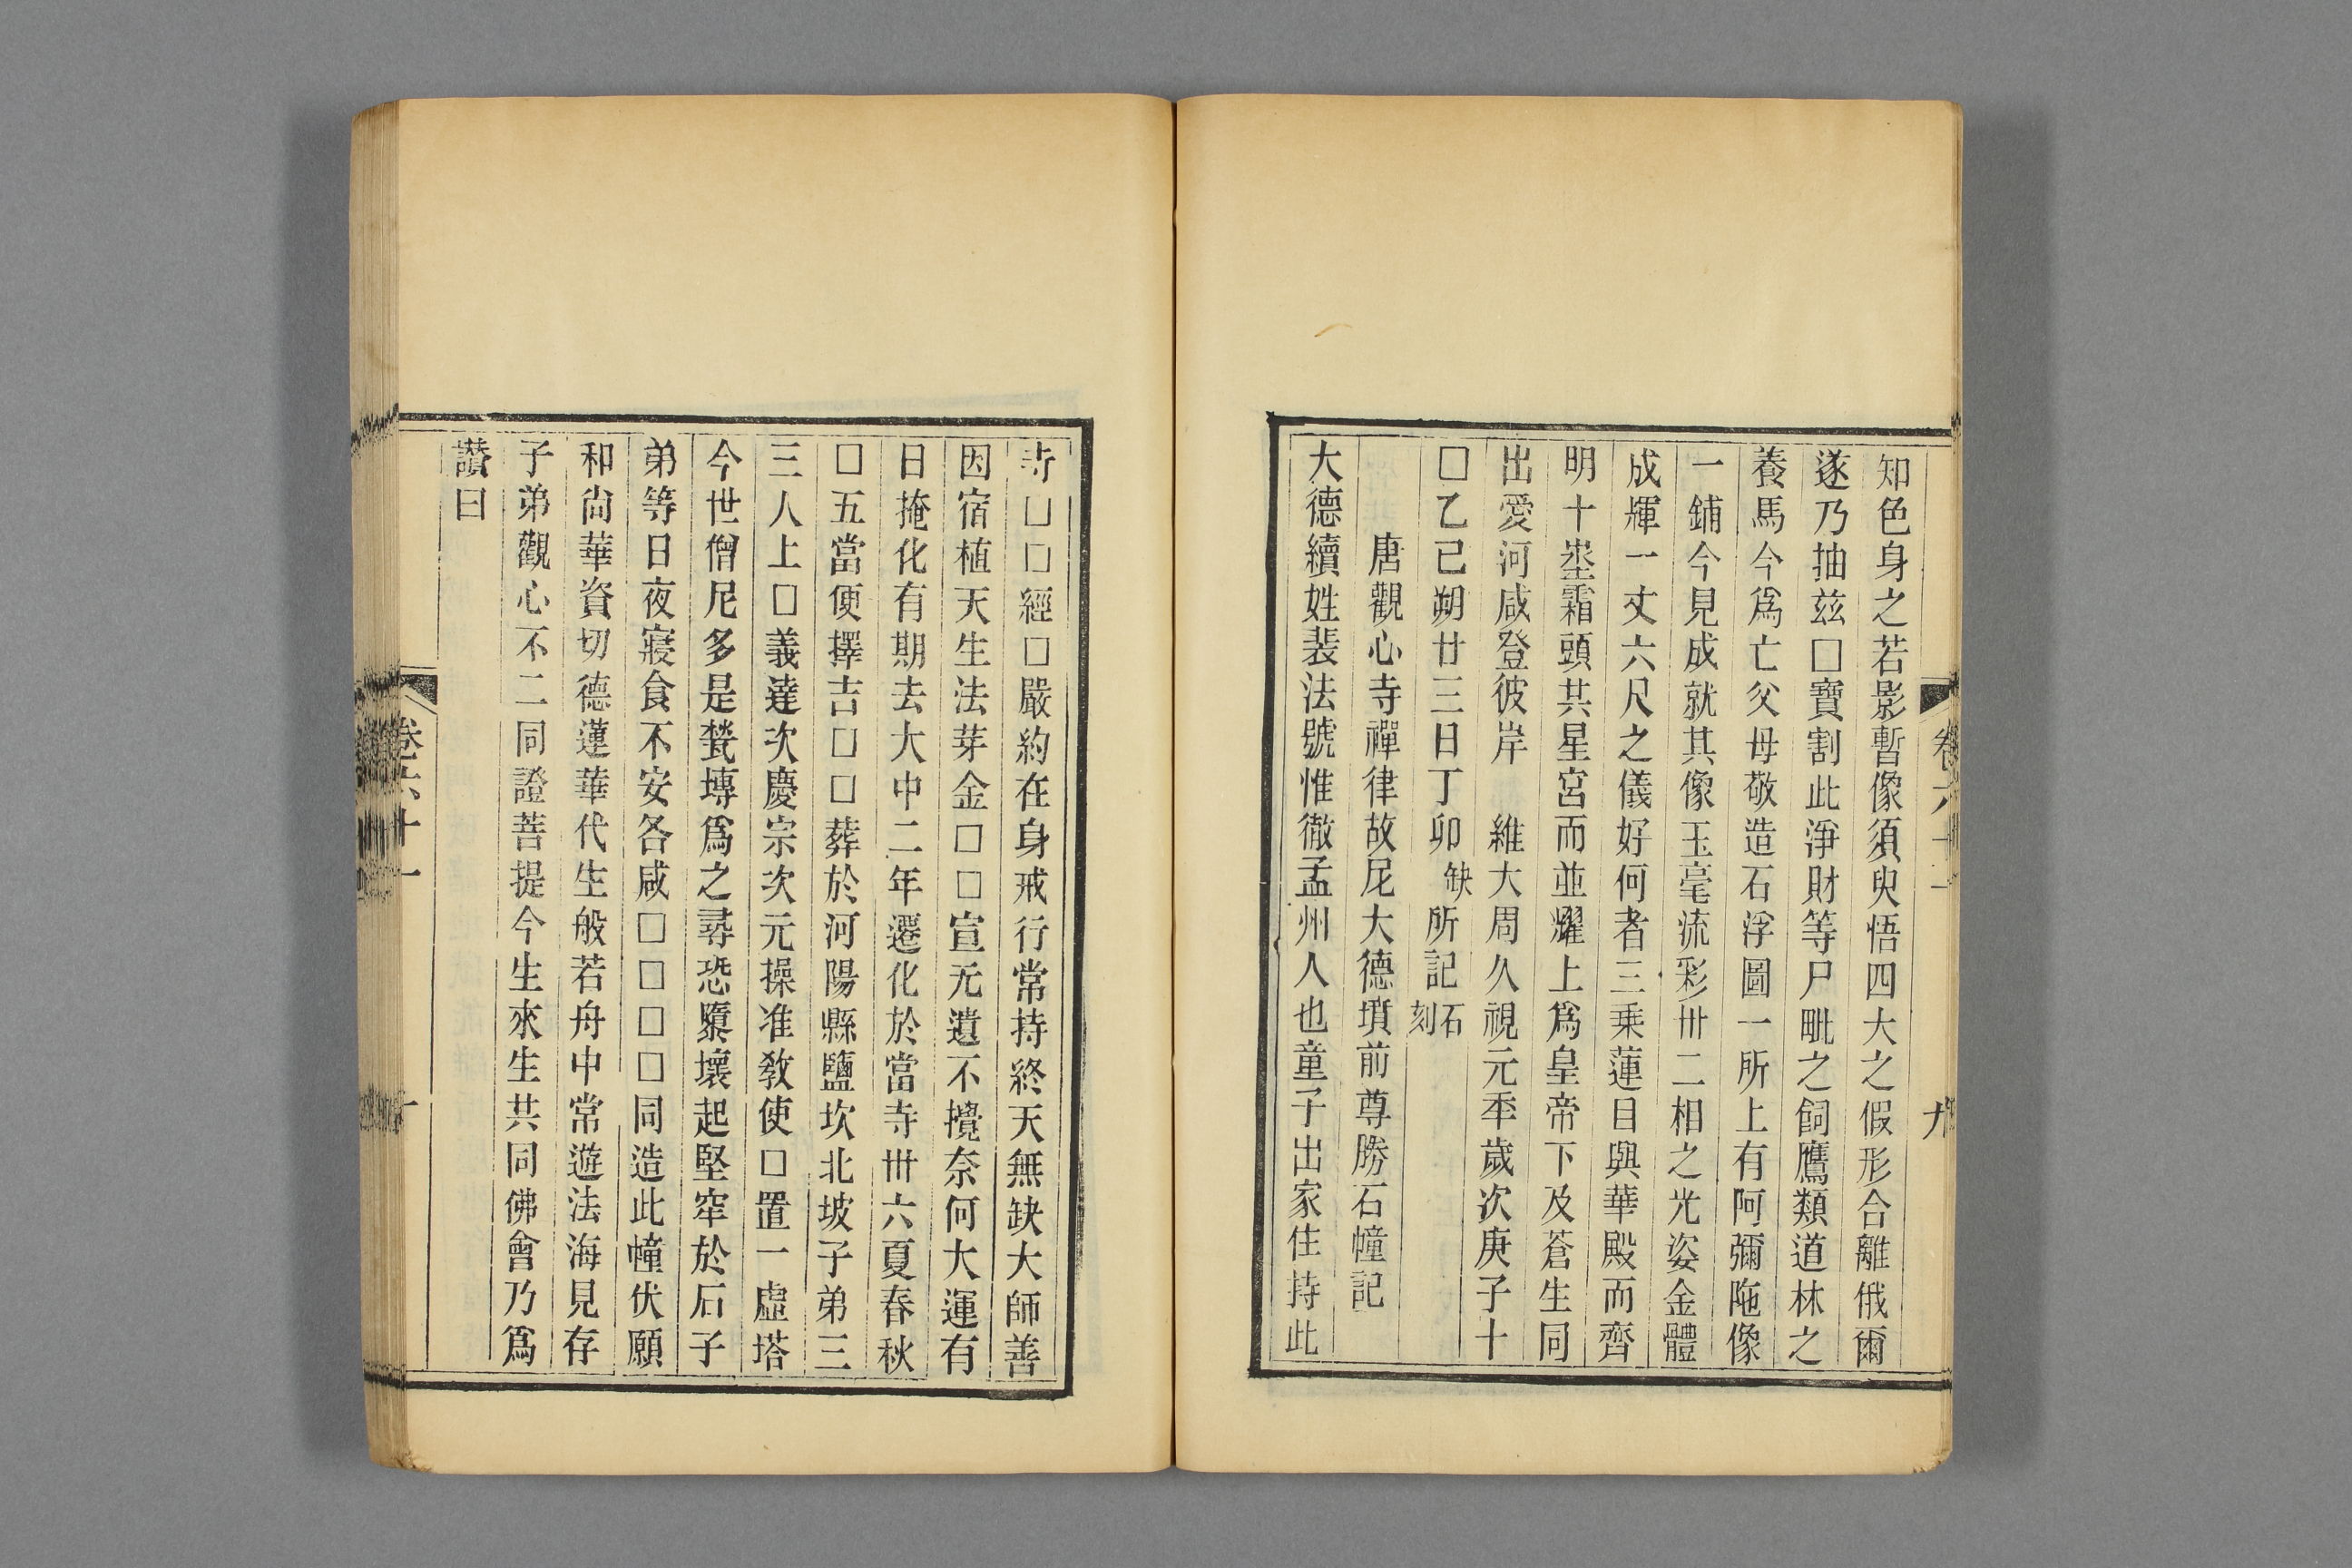 知色身之若影暫像須臾悟四大之假形合離俄爾
遂乃抽兹□寶割此淨財等尸毗之飼鷹類道林之
養馬今爲亡父母敬造石浮圖一所上有阿彌陁像
一鋪今見成就其像玉毫流彩卅二相之光姿金體
成輝一丈六尺之儀好何者三乗蓮目與華殿而齊
明十埊霜頭共星宮而並耀上爲皇帝下及蒼生同
出愛河咸登彼岸　維大周久視元秊歲次庚子十
□乙巳朔廿三日丁卯缺所記石刻
唐觀心寺禪律故尼大德墳前尊勝石幢記
大德續姓裴法號惟徹孟州人也童子出家住持此
寺□□經□嚴約在身戒行常持終天無缺大師善
因宿植天生法芽金□□宣无遺不攪奈何大運有
日掩化有期去大中二年遷化於當寺卅六夏春秋
□五當便擇吉□□葬於河陽縣鹽坎北坡子弟三
三人上□義達次慶宗次元操准敎使□置一虛塔
今世僧尼多是甃塼爲之尋恐隳壞起堅窂於石子
弟等日夜寢食不安各咸□□□□同造此幢伏願
和尙華資切德蓮華代生般若舟中常遊法海見存
子弟觀心不二同證菩提今生來生共同佛會乃爲
讚曰
卷六十一
九
卷六十一
十